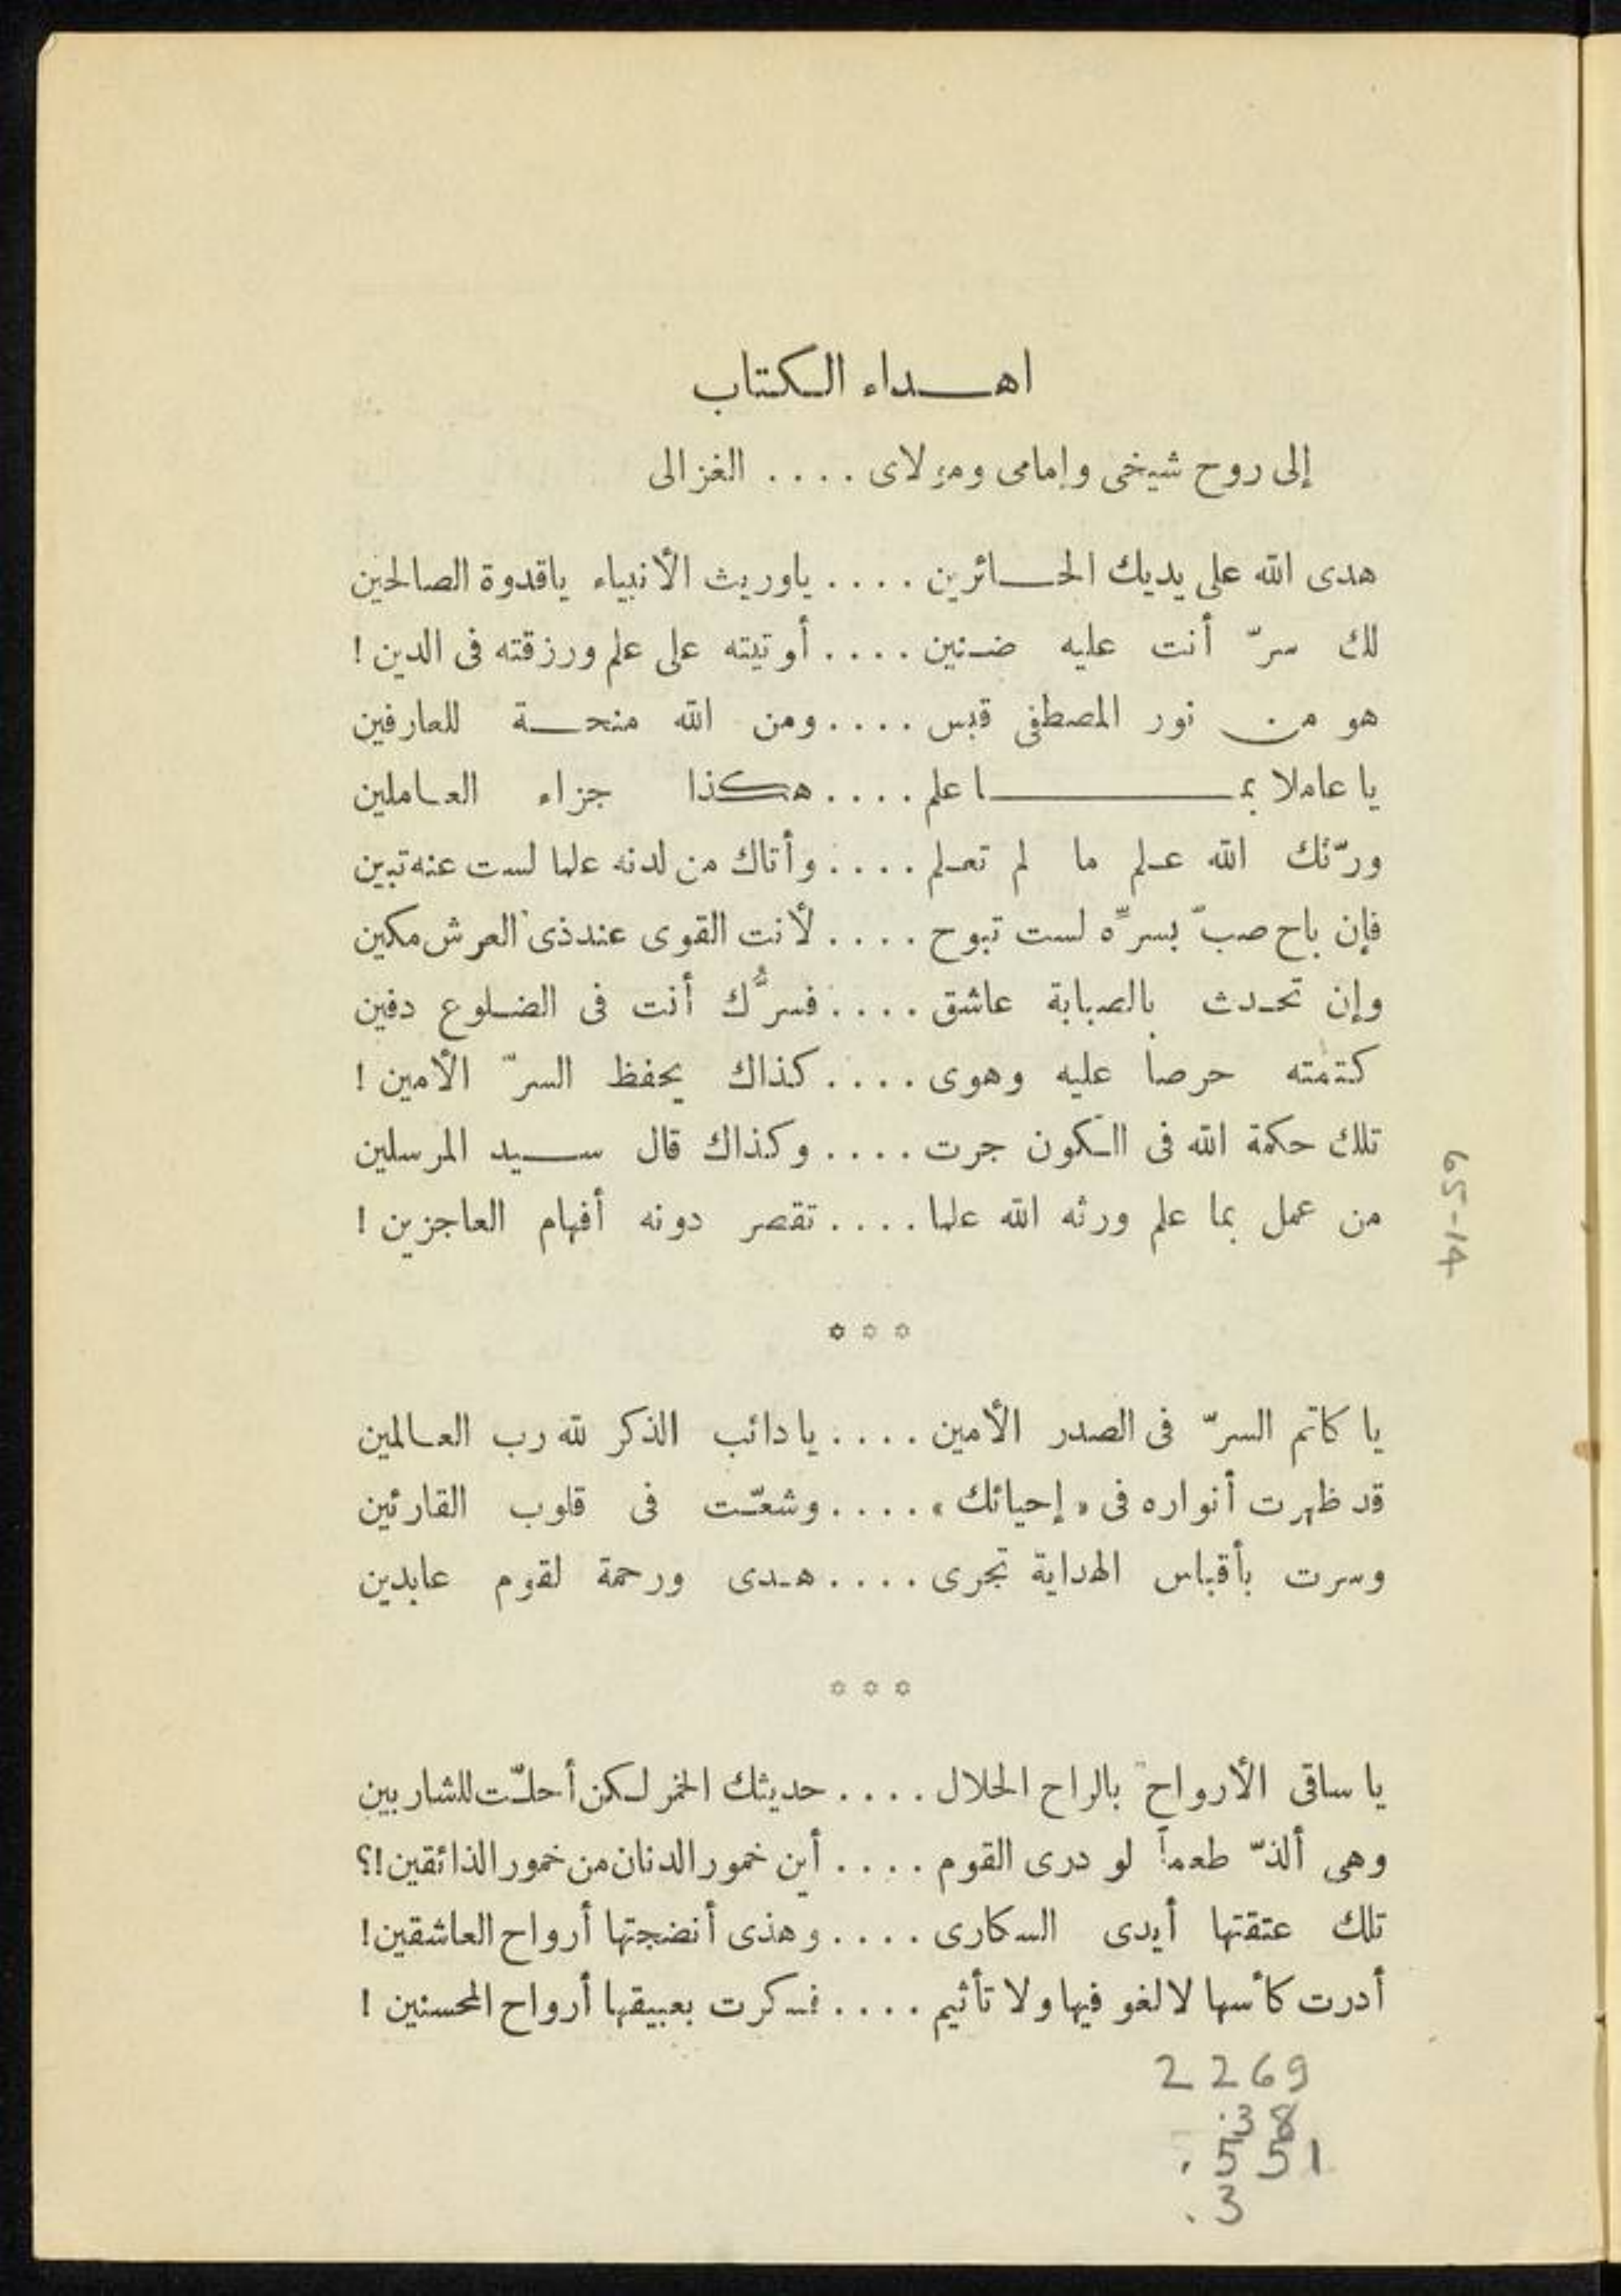 اهداء الكتاب
إلى روح شيخى وإمامى ومولاى .... الغزالى
هدى الله على يديك الحائرين .... ياوريث الأنبياء ياقدوة الصالحين
لك سرّ أنت عليه ضنين .... أوتيته على علم ورزقته فى الدين !
هو من نور المصطفى قبس .... ومن الله منحة للعارفين
يا عاملا بما علم .... هكذا جزاء العاملين
ورّثك الله علم ما لم تعلم .... وأتاك من لدنه علما لست عنه تبين
فإن باح صبّ بسرِّه لست تبوح .... لأنت القوى عند ذى العرش مكين
وإن تحدث بالصبابة عاشق .... فسرُّك أنت فى الضلوع دفين
كتمته حرصا عليه وهوى .... كذاك يحفظ السرّ الأمين !
تلك حكمة الله فى الكون جرت .... وكذاك قال سيد المرسلين
من عمل بما علم ورثه الله علما .... تقصر دونه أفهام العاجزين !
* * *
يا كاتم السرّ فى الصدر الأمين .... يا دائب الذكر لله رب العالمين
قد ظهرت أنواره فى «إحيائك» .... وشعّت فى قلوب القارئين
وسرت بأقباس الهداية تجرى .... هدى ورحمة لقوم عابدين
* * *
يا ساقى الأرواح بالراح الحلال .... حديثك الخمر لكن أحلّت للشاربين
وهى ألذّ طعماً لو درى القوم .... أين خمور الدنان من خمور الذائقين !؟
تلك عتقتها أيدى السكارى .... وهذى أنضجتها أرواح العاشقين !
أدرت كأسها لا لغو فيها ولا تأثيم .... فسكرت بعبيقها أرواح المحسنين !
2269
.38
.551
.3
65-14